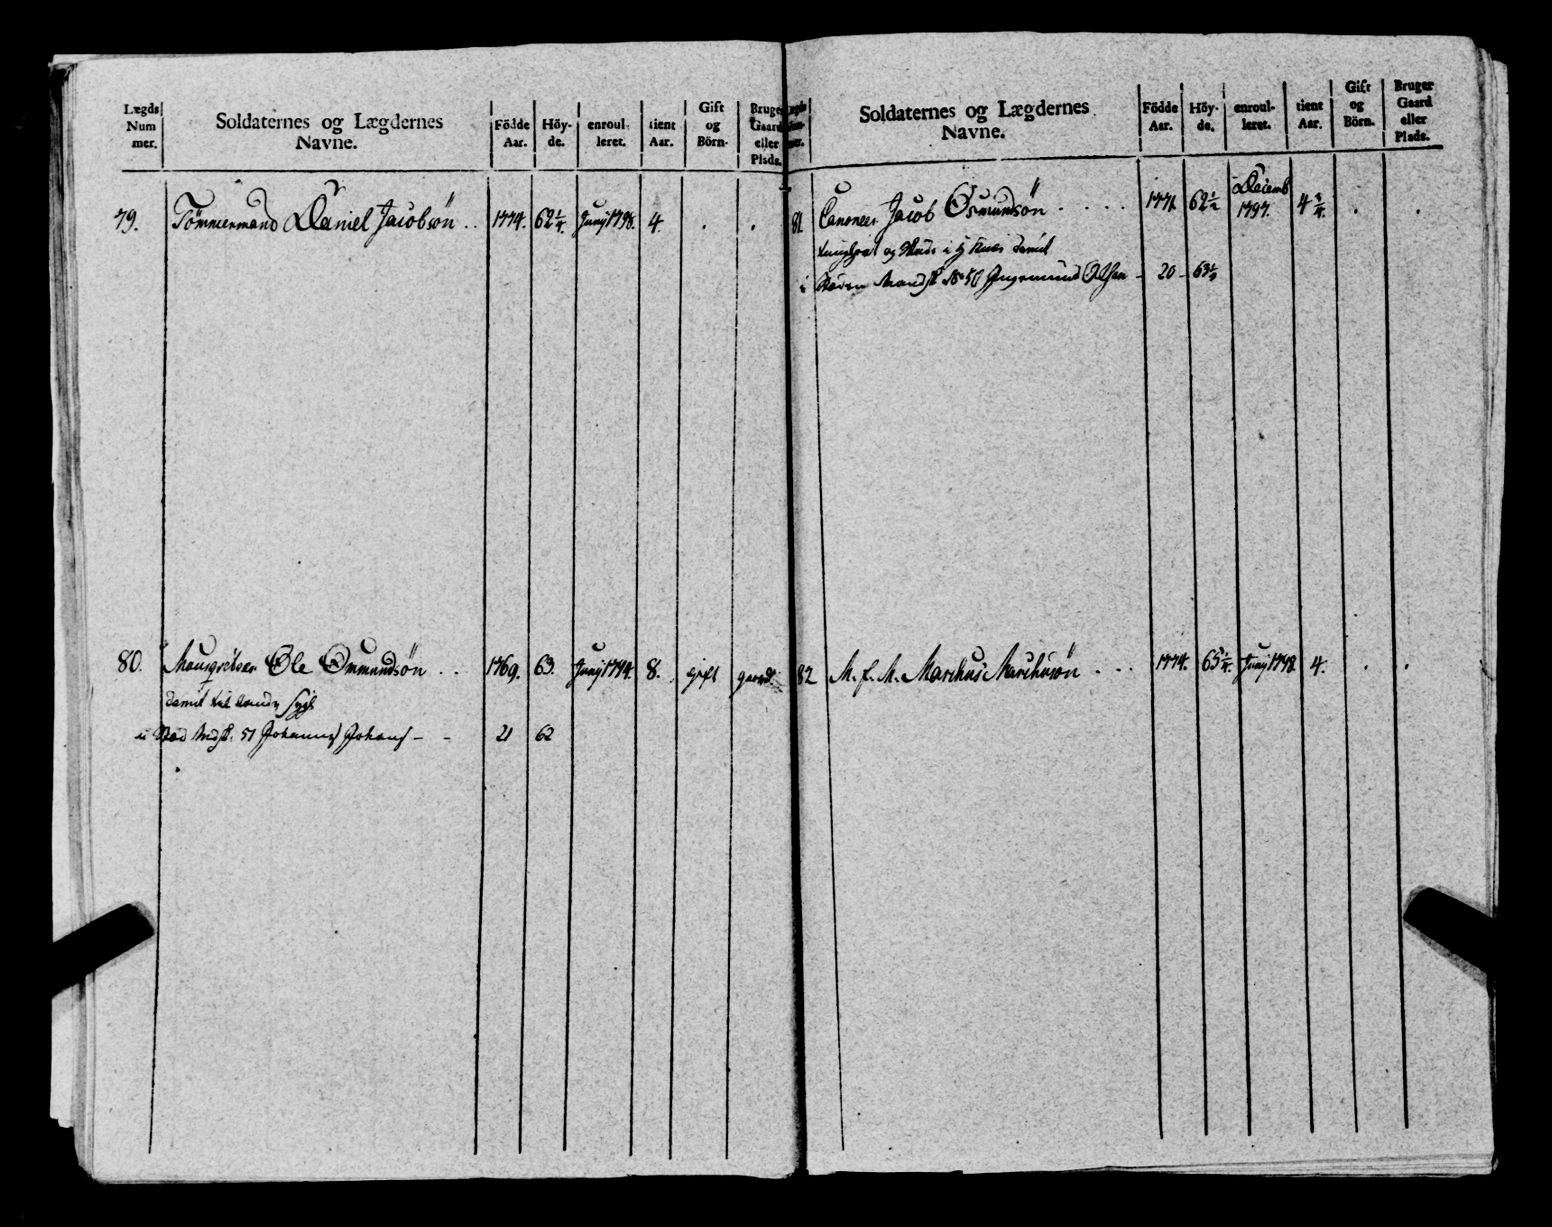 Lægds Num mer. Soldaternes og Lægdernes Navne. Födde Aar. Höy-de. enroul-leret. tient Aar. Gift og Börn. Bruger Gaard eller Plads.
79. Tömmermand Daniel Jacobsön . . 1774. 62 1/4. Junj 1798. 4. . .
80. Ole Omundsön . . 1769. 63. Junj 1794. 8. gift gaard
51 Johannes Johans - - 21 62
Soldaternes og Lægdernes Navne. Födde Aar. Höy-de. enroul-leret. tient Aar. Gift og Börn. Bruger Gaard eller Plads.
81. Canoneer Jacob Osmundsön . . . . 1771. 62 1/2 Decemb 1797. 4 3/4. . .
og i
i No 50 Ingemund Olsen - 20 - 63 1/2
82 M. f. M. Marchus Marchusön . . . 1774. Junj 1798. 4. . .